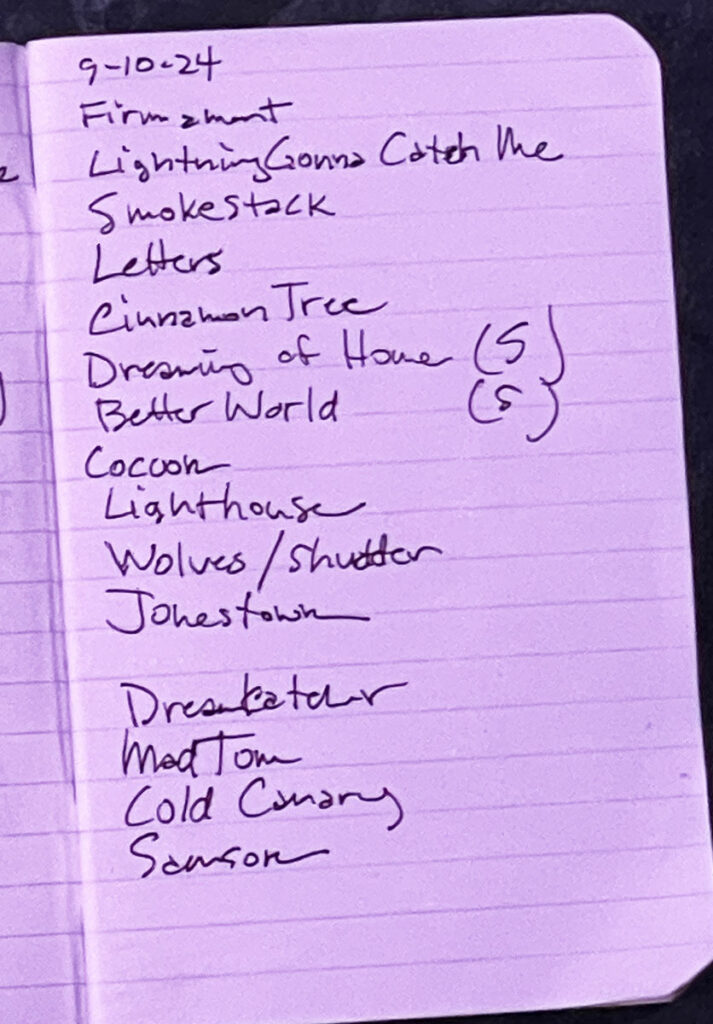 9-10-24
Firmament
Lightning Gonna Catch Me
Smokestack
Letters
Cinnamon Tree
Dreaming of Home (S)
Better World (S)
Cocoon
Lighthouse
Wolves / Shudder
Jonestown
Dreamkatcher
Mad Tom
Cold Canary
Samson